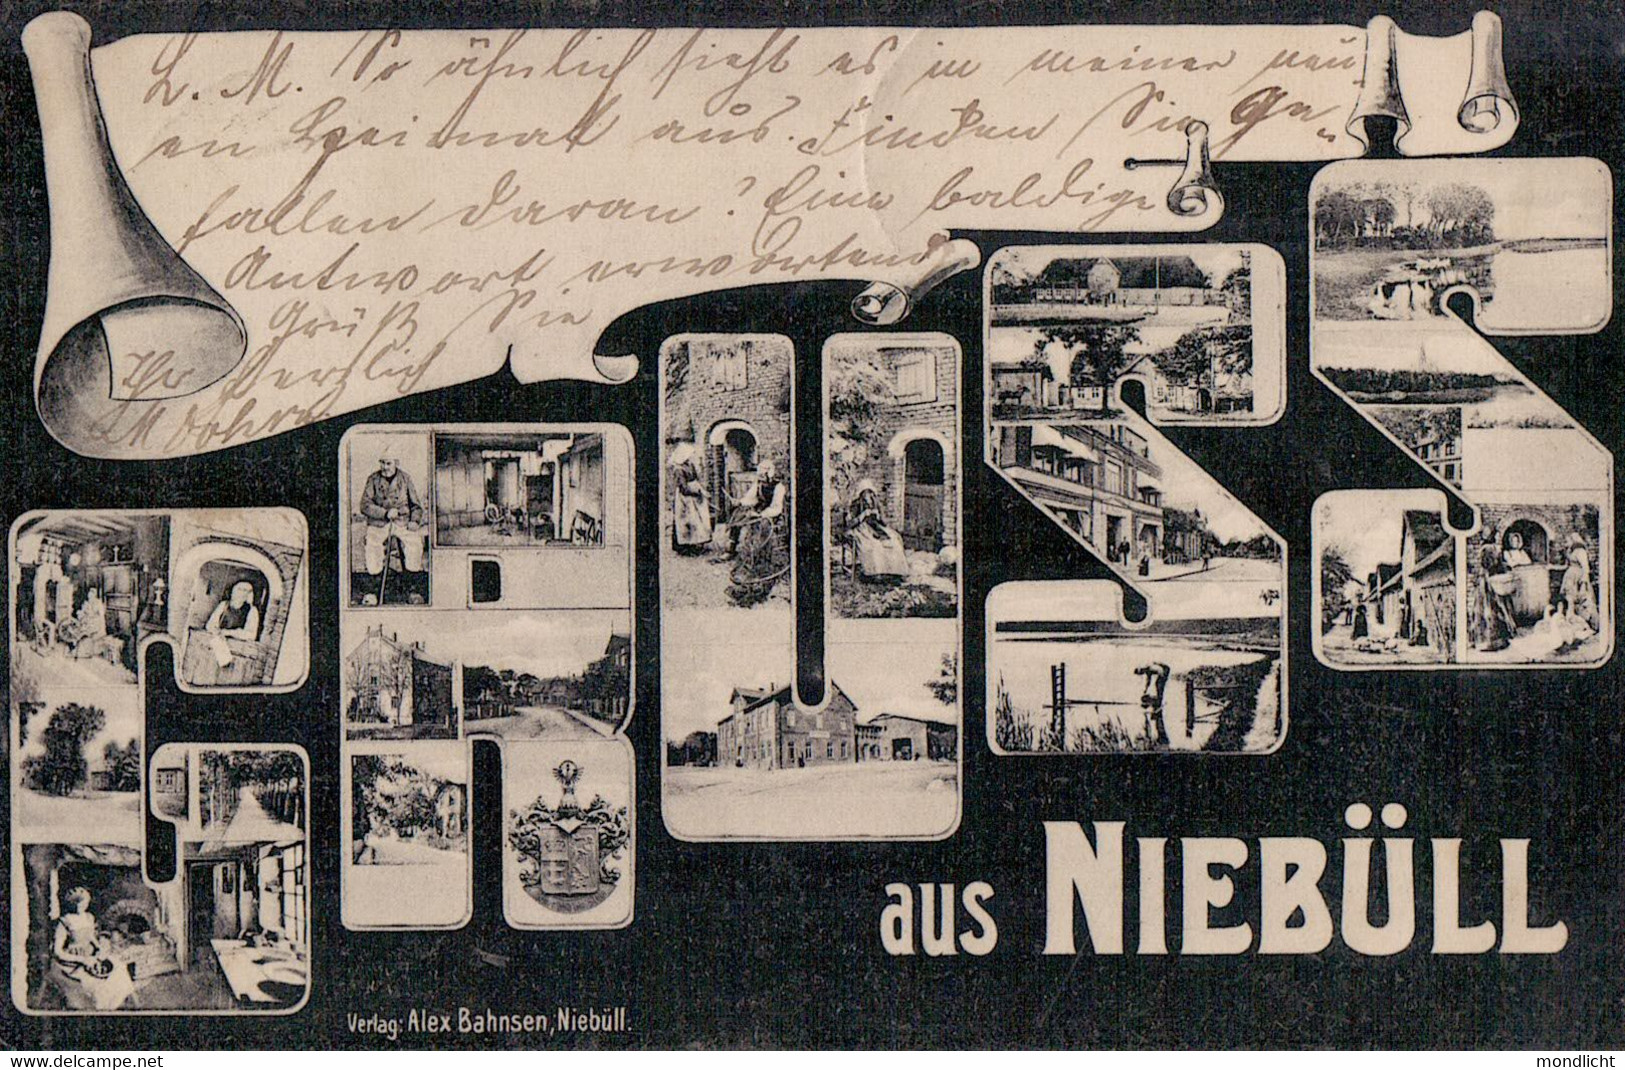 L. M. So ähnlich sieht es in meiner neu
en Heimat aus. Finden Sie Ge-
fallen daran? Eine baldige
Antwort erwartend
Grüßt Sie
Ihr herzlich
GRUSS
aus NIEBÜLL
Verlag: Alex Bahnsen, Niebüll.
www.delcampe.net
mondlicht